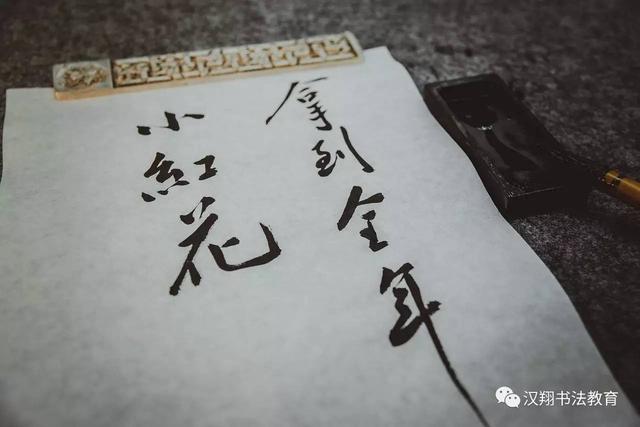 拿到全年
小紅花
汉翔书法教育